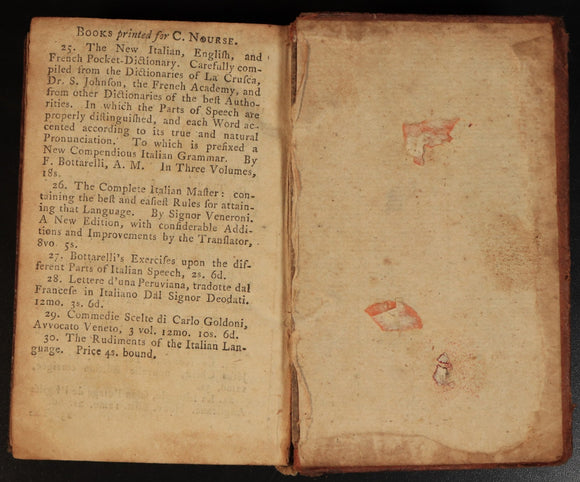 BOOKS printed for C. NOURSE.
25. The New Italian, Engliſh, and
French Pocket-Dictionary. Carefully com-
piled from the Dictionaries of La Cruſca,
Dr. S. Johnſon, the French Academy, and
from other Dictionaries of the beſt Autho-
rities. In which the Parts of Speech are
properly diſtinguiſhed, and each Word ac-
cented according to its true and natural
Pronunciation. To which is prefixed a
New Compendious Italian Grammar. By
F. Bottarelli, A. M. In Three Volumes,
18s.
26. The Complete Italian Maſter: con-
taining the beſt and eaſieſt Rules for attain-
ing that Language. By Signor Veneroni.
A New Edition, with conſiderable Addi-
tions and Improvements by the Tranſlator,
8vo 5s.
27. Bottarelli's Exerciſes upon the dif-
ferent Parts of Italian Speech, 2s. 6d.
28. Lettere d'una Peruviana, tradotte dal
Franceſe in Italiano Dal Signor Deodati.
12mo. 3s. 6d.
29. Commedie Scelte di Carlo Goldoni,
Avvocato Veneto, 3 vol. 12mo. 10s. 6d.
30. The Rudiments of the Italian Lan-
guage. Price 4s. bound.